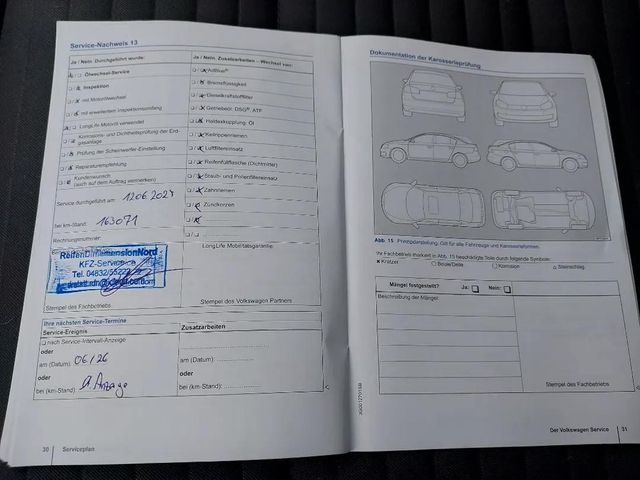 Service-Nachweis 13
Ja / Nein, Durchgeführt wurde:
Ölwechsel-Service
Inspektion
mit Motorölwechsel
mit erweitertem Inspektionsumfang
LongLife Motoröl verwendet
Korrosions- und Dichtheitsprüfung der Erd-
gasanlage
Prüfung der Scheinwerfer-Einstellung
Reparaturempfehlung
Kundenwunsch
(auch auf dem Auftrag vermerken)
Service durchgeführt am: 12.06.2024
bei km-Stand: 163071
Rechnungsnummer:
ReifenDimensionNord
KFZ-Service
Tel. 04832/5522
Stempel des Fachbetriebs
Ja / Nein, Zusatzarbeiten - Wechsel von:
AdBlue®
Bremsflüssigkeit
Dieselkraftstofffilter
Getriebeöl: DSG®, ATF
Haldexkupplung: Öl
Keilrippenriemen
Luftfiltereinsatz
Reifenfüllflasche (Dichtmittel)
Staub- und Pollenfiltereinsatz
Zahnriemen
Zündkerzen
LongLife Mobilitätsgarantie:
Stempel des Volkswagen Partners
Ihre nächsten Service-Termine
Service-Ereignis
nach Service-Intervall-Anzeige
oder
am (Datum): 06/26
oder
bei (km-Stand):
Zusatzarbeiten
am (Datum):
oder
bei (km-Stand):
30 Serviceplan
Dokumentation der Karosserieprüfung
Abb. 15 Prinzipdarstellung: Gilt für alle Fahrzeuge und Karosserieformen.
Ihr Fachbetrieb markiert in Abb. 15 beschädigte Teile durch folgende Symbole:
× Kratzer ○ Beule/Delle □ Korrosion △ Steinschlag
Mängel festgestellt? Ja: Nein:
Beschreibung der Mängel:
Stempel des Fachbetriebs
Der Volkswagen Service 31